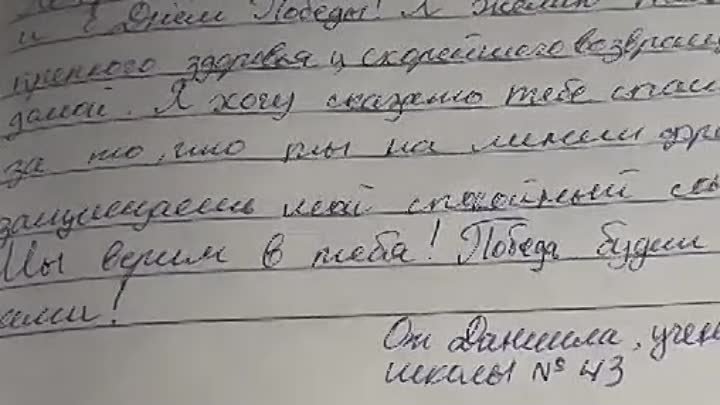 и с Днём Победы! Я желаю
крепкого здоровья и скорейшего возвращ
домой. Я хочу сказать тебе спаси
за то, что ты на линии фро
защищаешь мой спокойный со
Мы верим в тебя! Победа будет
нами!
От Даниила, учен
школы № 43